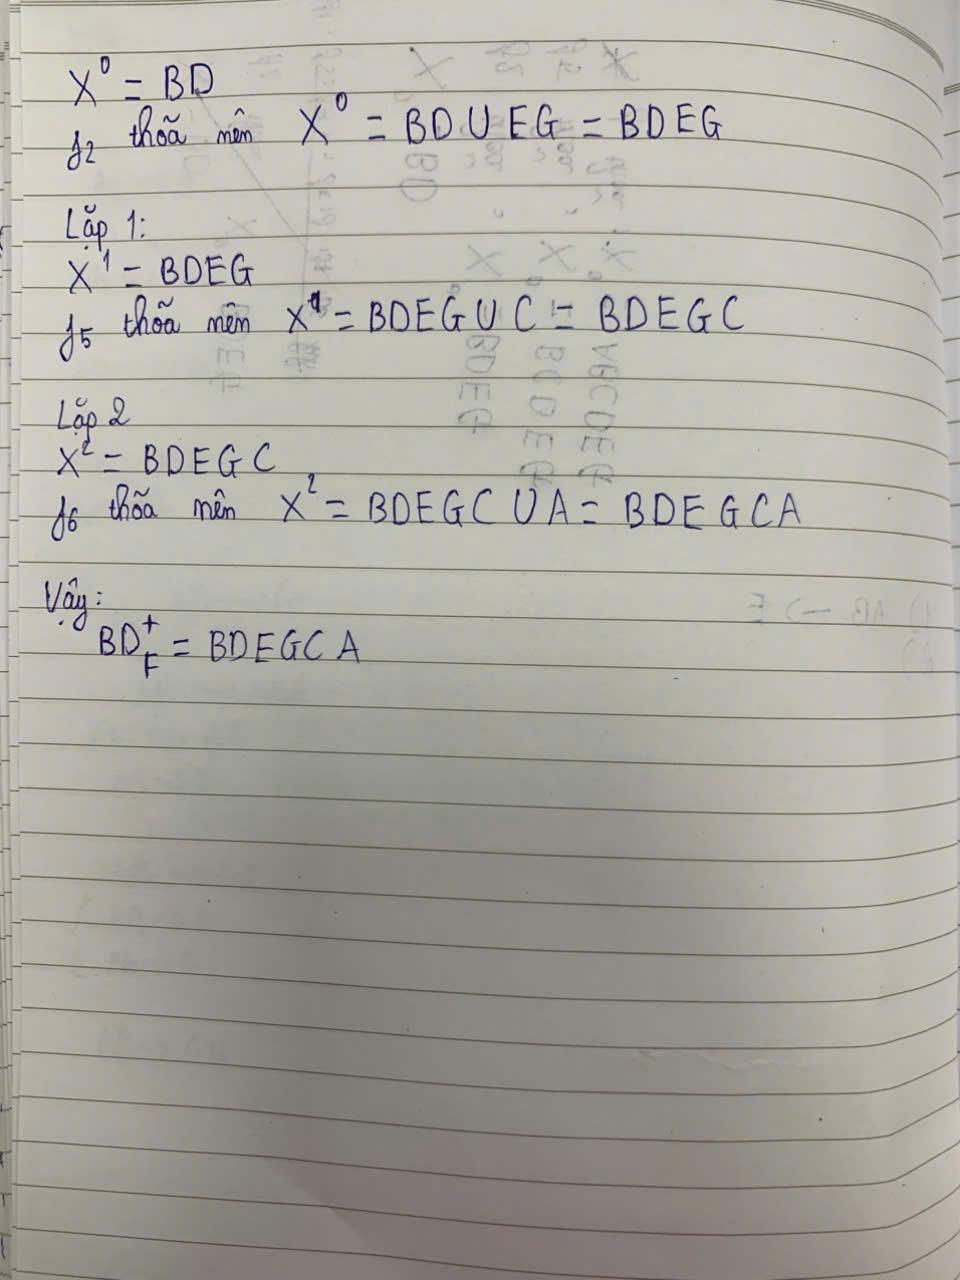 X⁰ = BD
f₂ thõa nên X⁰ = BD U EG = BDEG
Lặp 1:
X¹ = BDEG
f₅ thõa nên X¹ = BDEG U C = BDEGC
Lặp 2
X² = BDEGC
f₆ thõa nên X² = BDEGC U A = BDEGCA
Vậy:
BD⁺F = BDEGCA
1) AB → E
2)